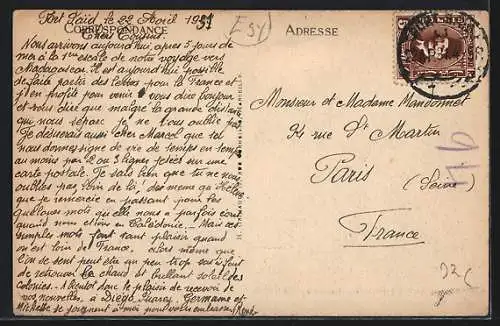 Port Said, le 22 Avril 1937
CORRESPONDANCE
ADRESSE
Chers Cousins,
Nous arrivons aujourd'hui, après 5 jours de
mer à la 1ère escale de notre voyage vers
Madagascar. Il est aujourd'hui possible
de faire partir des lettres pour la France et
j'en profite pour venir vous dire bonjour
et vous dire que malgré la grande distance
qui nous sépare je ne vous oublie pas.
Je désirerais aussi cher Marcel que tu
nous donnes signe de vie de temps en temps
au moins par 1 ou 2 lignes jetées sur une
carte postale. Je sais bien que tu ne nous
oublies pas, loin de là, de même qu'Hélène
que je remercie en passant pour les
quelques mots qu'elle nous a parfois écrit
quand nous étions en Calédonie. - Mais ces
simples mots font tant plaisir quand
on est loin de France. Alors même que
l'on se sent peut être un peu trop
de retrouver le chaud et brillant soleil des
Colonies. A bientôt donc le plaisir de recevoir de
vos nouvelles, à Diégo Suarez, Germaine et
Michelle se joignent à moi pour vous embrasser. René
Monsieur et Madame
94 rue St Martin
Paris
(Seine)
France